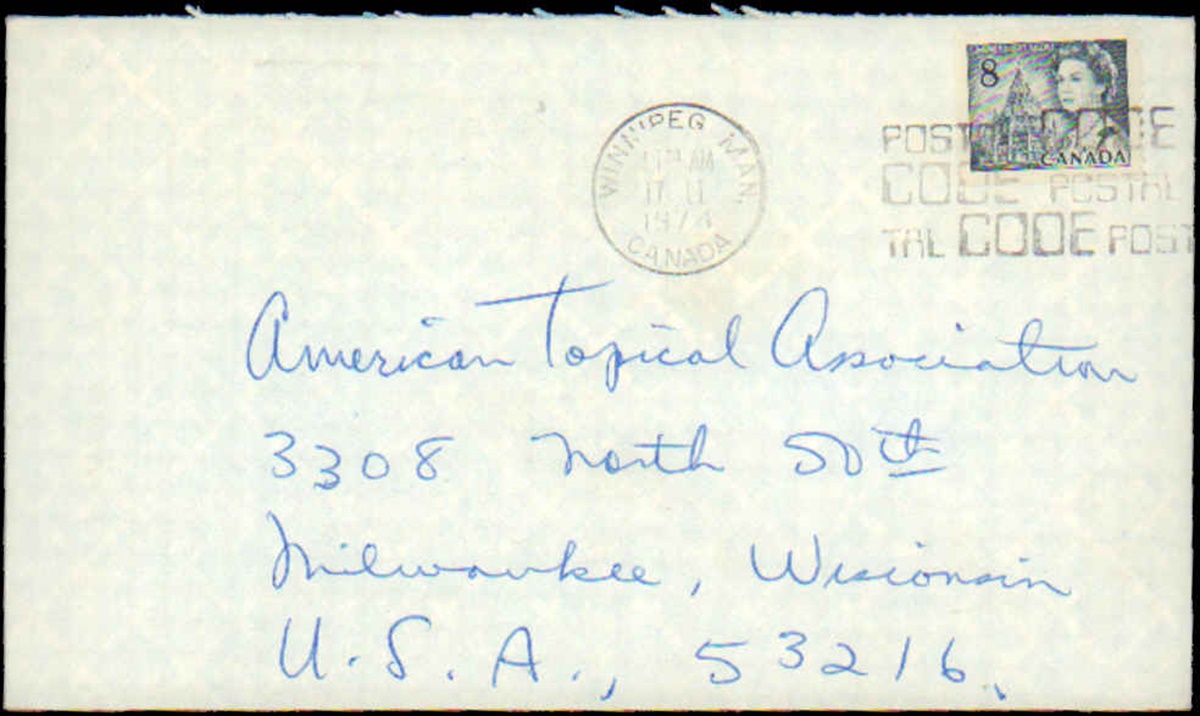 8
CANADA
WINNIPEG MAN.
AM
17 II
1974
CANADA
POSTAL CODE
CODE POSTAL
TAL CODE POST
American Topical Association
3308 North 50th
Milwaukee, Wisconsin
U.S.A., 53216.